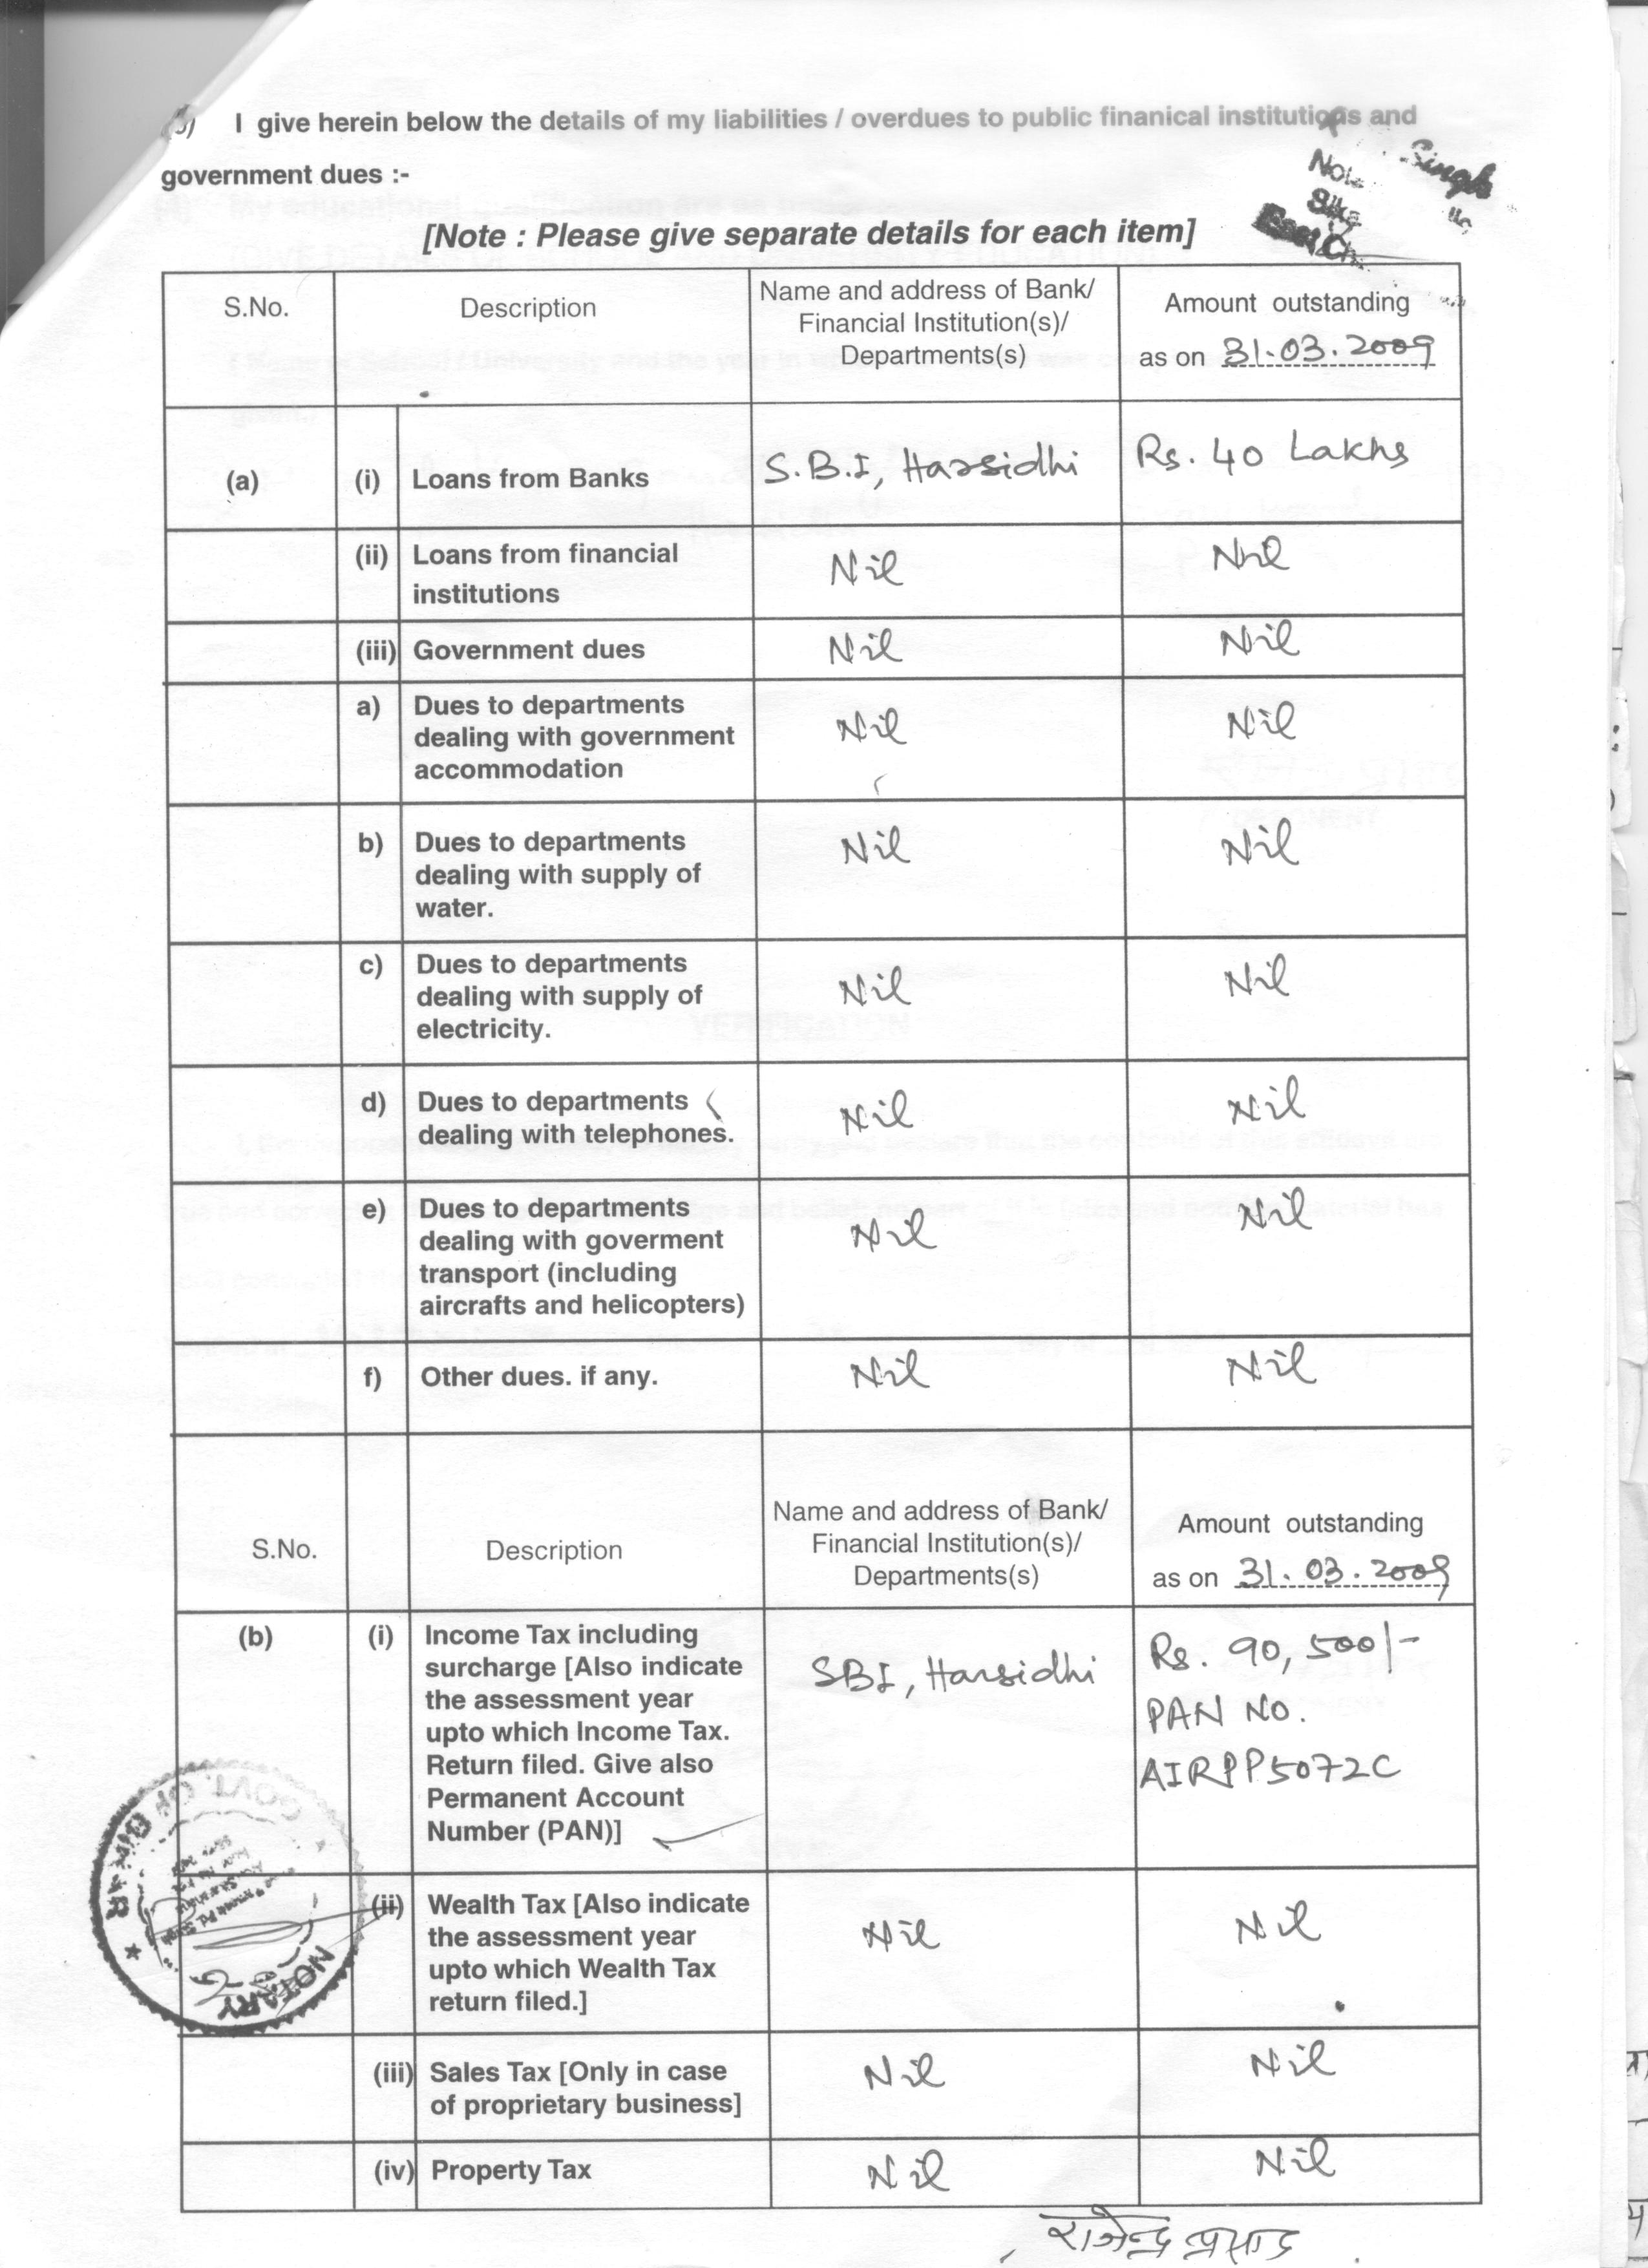 I give herein below the details of my liabilities / overdues to public finanical institutions and
government dues :-
[Note : Please give separate details for each item]
Singh
S.No.
Description
Name and address of Bank/
Financial Institution(s)/
Departments(s)
Amount outstanding
as on 31.03.2009
(a)
(i) Loans from Banks
S.B.I, Harsidhi
Rs. 40 Lakhs
(ii) Loans from financial
institutions
Nil
Nil
(iii) Government dues
Nil
Nil
a) Dues to departments
dealing with government
accommodation
Nil
Nil
b) Dues to departments
dealing with supply of
water.
Nil
Nil
c) Dues to departments
dealing with supply of
electricity.
Nil
Nil
d) Dues to departments
dealing with telephones.
Nil
Nil
e) Dues to departments
dealing with goverment
transport (including
aircrafts and helicopters)
Nil
Nil
f) Other dues. if any.
Nil
Nil
S.No.
Description
Name and address of Bank/
Financial Institution(s)/
Departments(s)
Amount outstanding
as on 31.03.2009
(b)
(i) Income Tax including
surcharge [Also indicate
the assessment year
upto which Income Tax.
Return filed. Give also
Permanent Account
Number (PAN)]
SBI, Harsidhi
Rs. 90,500/-
PAN NO.
AIRPP5072C
(ii) Wealth Tax [Also indicate
the assessment year
upto which Wealth Tax
return filed.]
Nil
Nil
(iii) Sales Tax [Only in case
of proprietary business]
Nil
Nil
(iv) Property Tax
Nil
Nil
NOTARY
राजेन्द्र प्रसाद